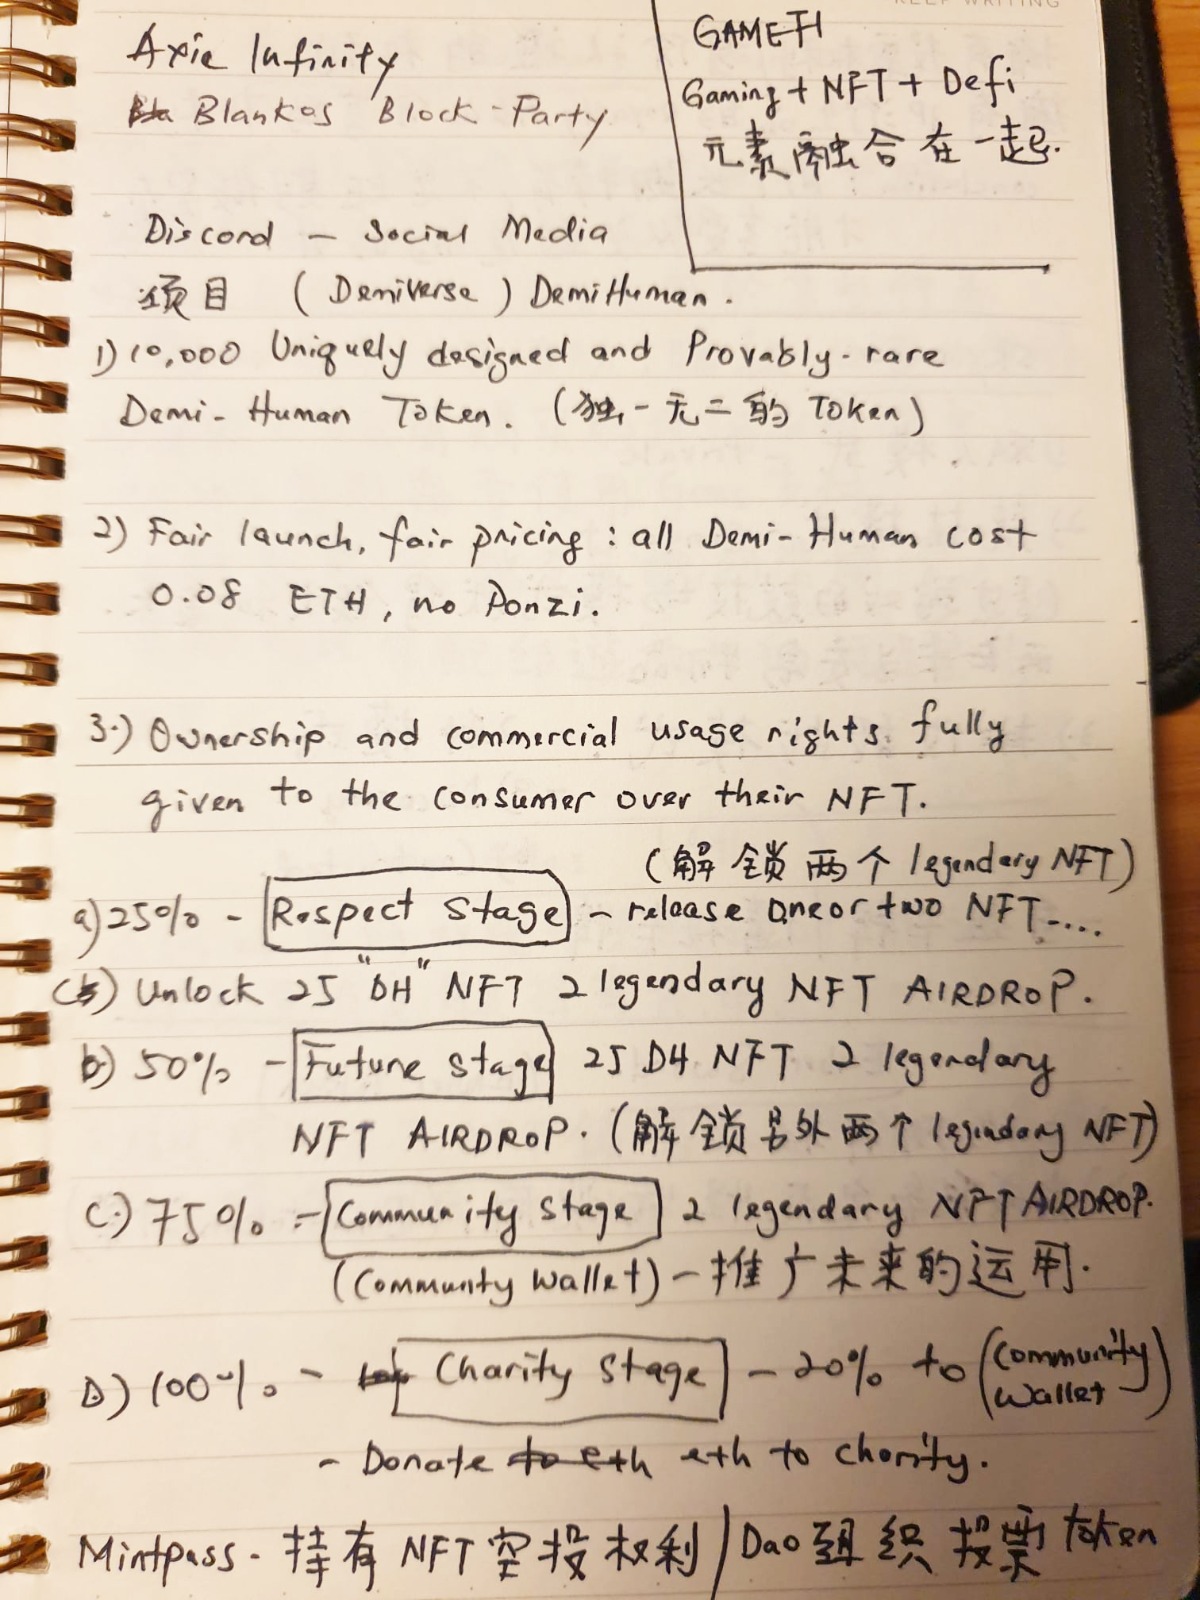 KEEP WRITING
Axie Infinity
Blankos Block-Party
GAMEFI
Gaming + NFT + Defi
元素融合在一起.
Discord – Social Media
项目 (Demiverse) DemiHuman.
1) 10,000 Uniquely designed and Provably-rare
Demi-Human Token. (独一无二的 Token)
2) Fair launch, fair pricing : all Demi-Human cost
0.08 ETH, no Ponzi.
3.) Ownership and commercial usage rights fully
given to the consumer over their NFT.
(解锁两个 legendary NFT)
a) 25% - Respect Stage - release one or two NFT....
Unlock 25 "DH" NFT 2 legendary NFT AIRDROP.
b) 50% - Future stage 25 DH NFT 2 legendary
NFT AIRDROP. (解锁另外两个 legendary NFT)
C.) 75% - Community Stage 2 legendary NFT AIRDROP.
(Communty Wallet) - 推广未来的运用.
D.) 100% - Charity Stage - 20% to (Community
Wallet)
- Donate eth to charity.
Mintpass - 持有 NFT 空投权利 / Dao 组织投票 token